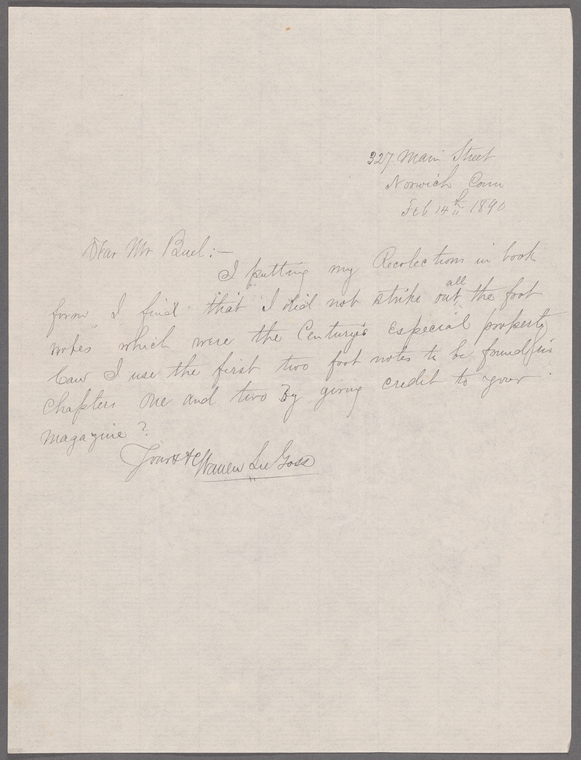 227 Main Street
Norwich Conn
Feb 14th 1890
Dear Mr Buel:-
I putting my Recolections in book
form I find that I did not strike out all the foot
notes which were the Century's especial property
Can I use the first two foot notes to be found in
chapters one and two by giving credit to your
magazine?
Yours &c Warren Lee Goss